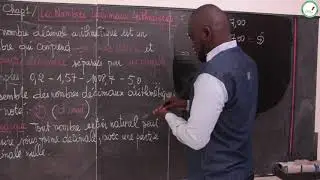 Chap1 Les Nombres décimaux Arithmétiques
nombre décimal arithmétique est un
bre qui comprend et
séparées par un
ples: 0,2 - 1,57 - - 50
semble des nombres décimaux arithmétiques
note: D
: Tout nombre entier naturel peut
ire sous forme décimale, avec une partie
male nulle.
7,00